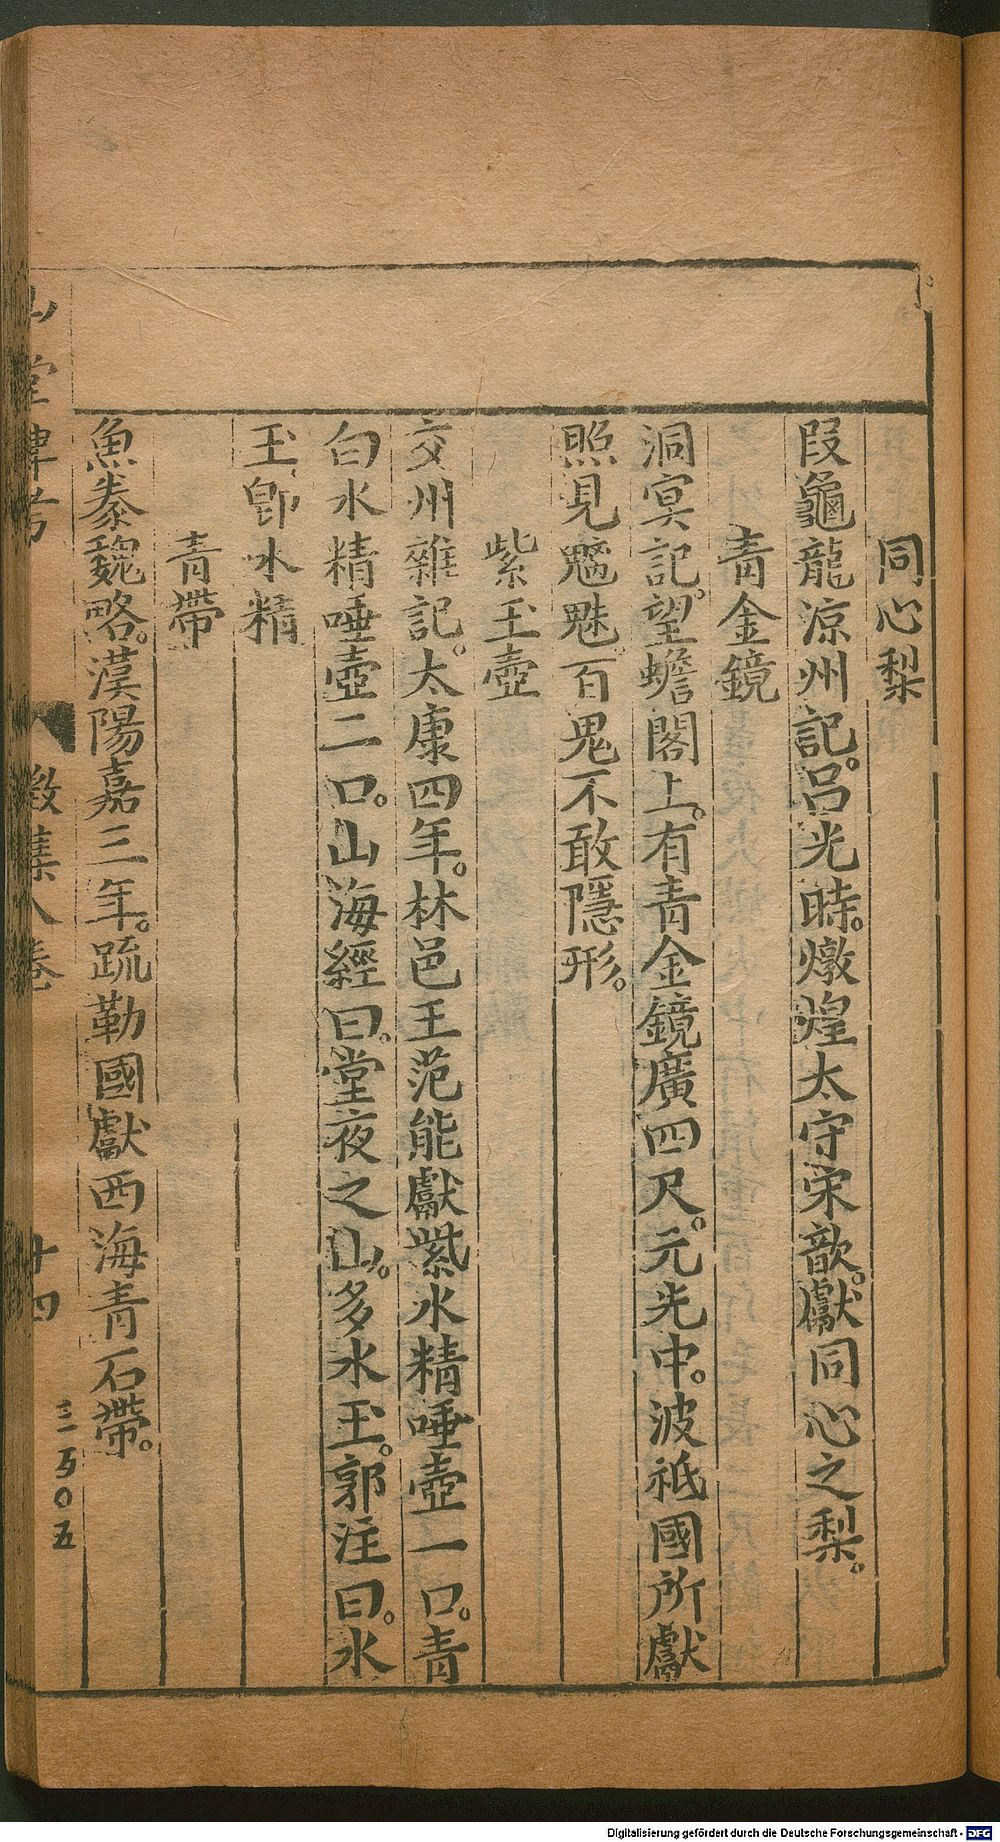 同心梨
叚龜龍涼州記。呂光時。燉煌太守宋歆。獻同心之梨。
青金鏡
洞冥記。望蟾閣上。有青金鏡廣四尺。元光中。波祗國所獻
照見魑魅百鬼不敢隱形。
紫玉壺
交州雜記。太康四年。林邑王范能獻紫水精唾壺一口。青
白水精唾壺二口。山海經曰。堂夜之山。多水玉。郭注曰。水
玉卽水精
青帶
魚豢魏略。漢陽嘉三年。疏勒國獻西海青石帶。
山堂肆考
徵集八卷
十四
Digitalisierung gefördert durch die Deutsche Forschungsgemeinschaft - DFG